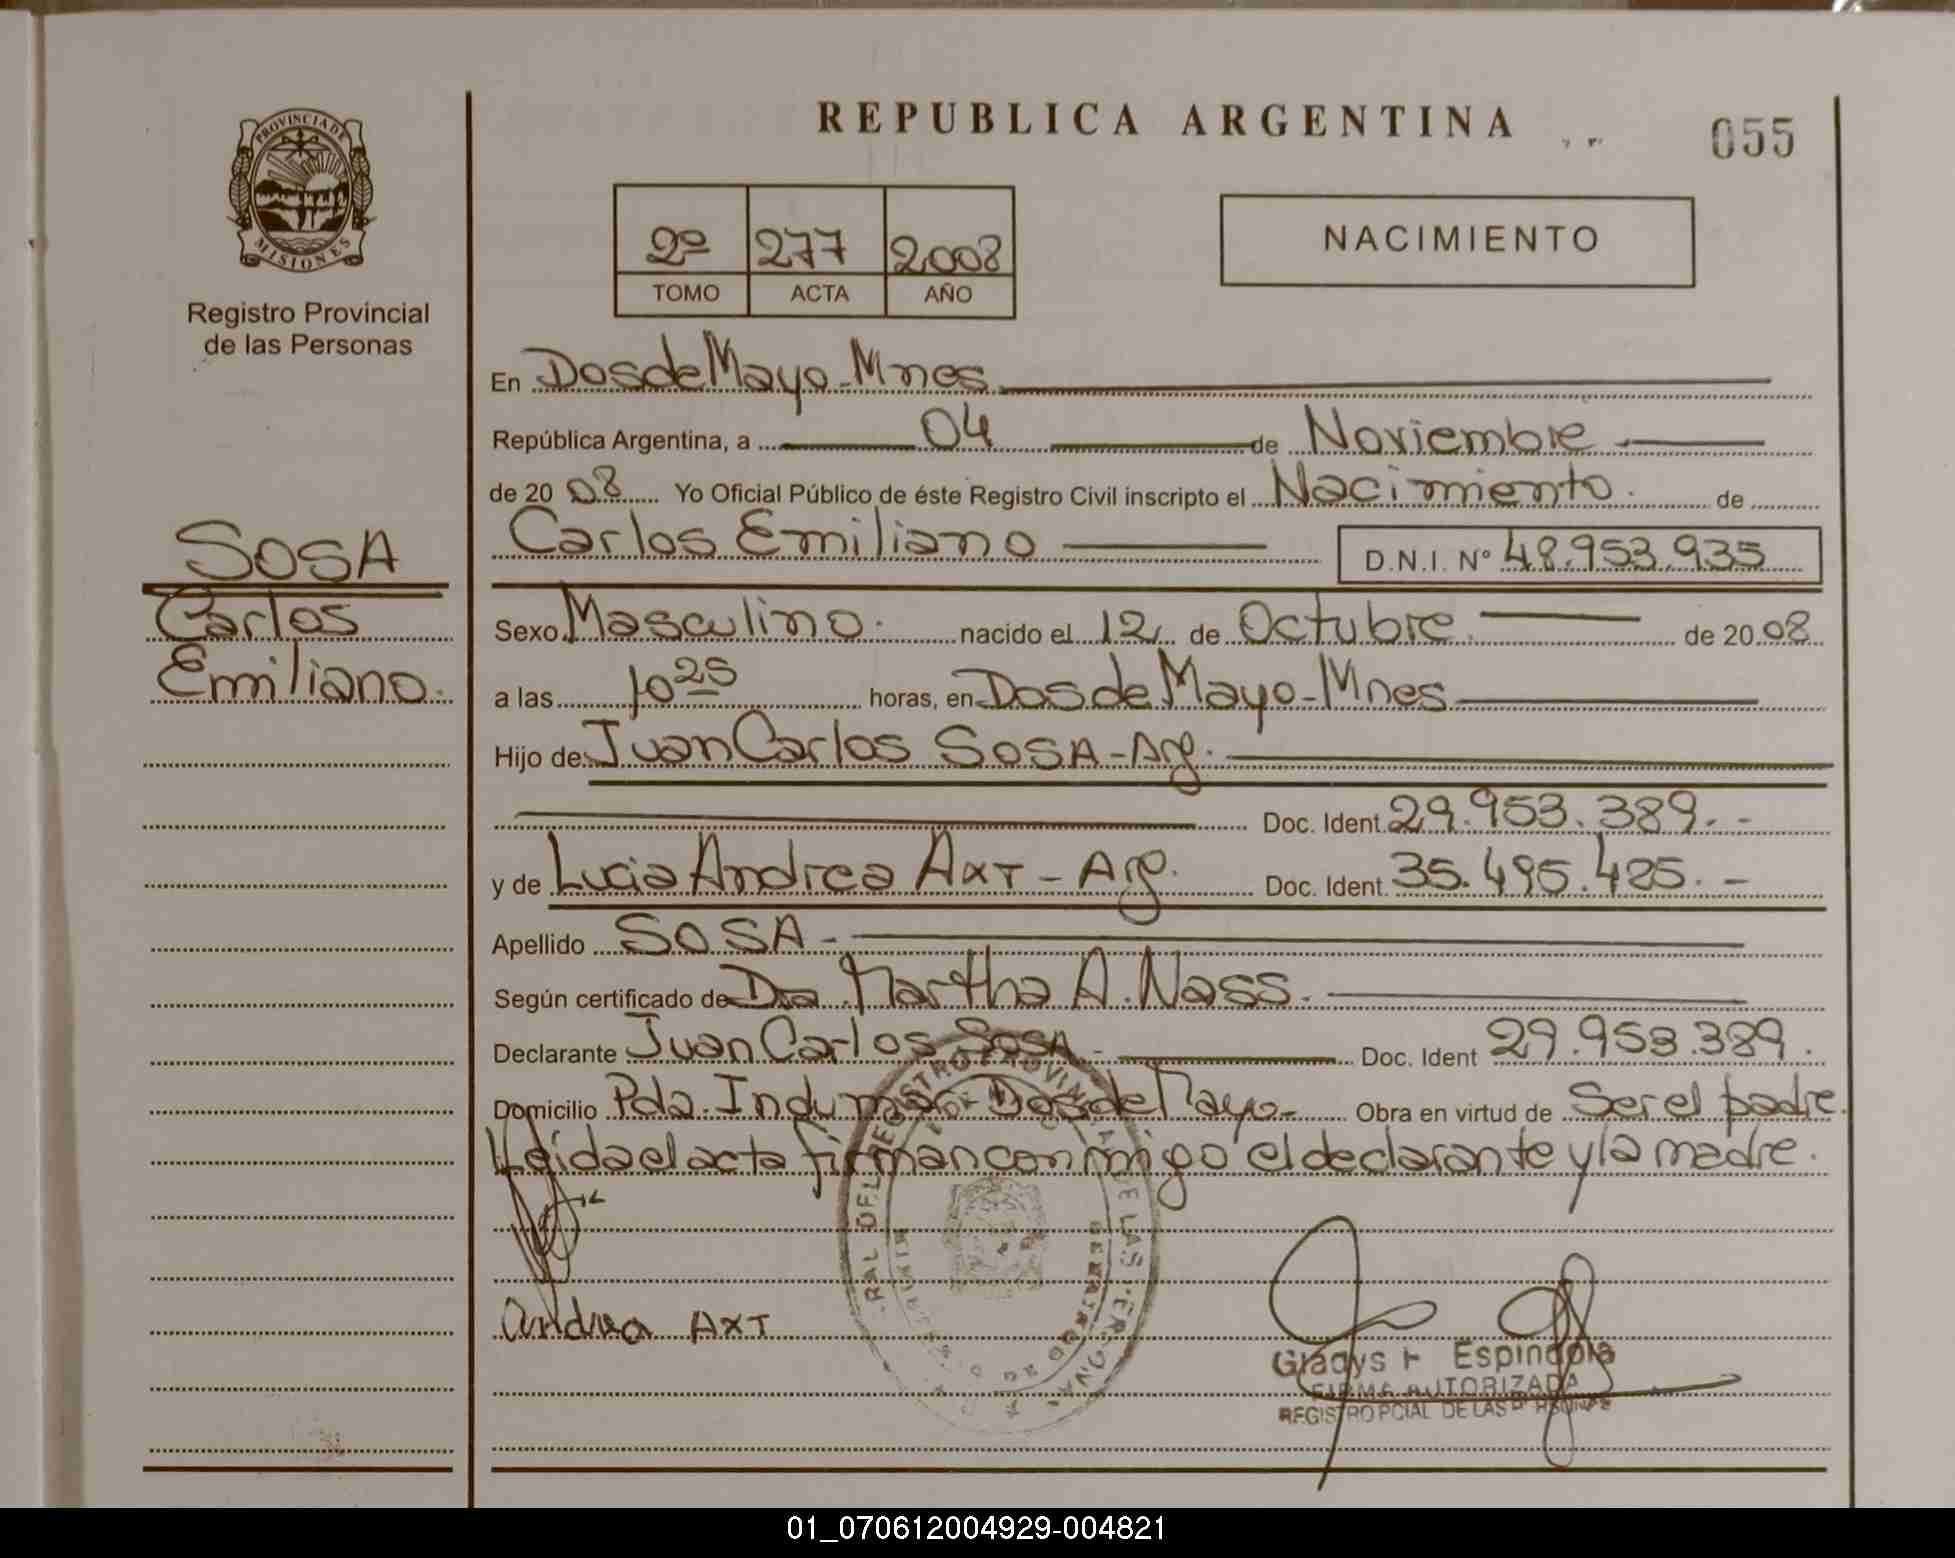 REPUBLICA ARGENTINA
055
PROVINCIA DE
MISIONES
Registro Provincial
de las Personas
2º 277 2008
TOMO ACTA AÑO
NACIMIENTO
En Dos de Mayo - Mnes
República Argentina, a 04 de Noviembre
de 2008 Yo Oficial Público de éste Registro Civil inscripto el Nacimiento. de
Carlos Emiliano D.N.I. Nº 48.953.935
SOSA
Carlos
Emiliano.
Sexo Masculino. nacido el 12 de Octubre. de 2008
a las 10 25 horas, en Dos de Mayo - Mnes
Hijo de: Juan Carlos SOSA - Arg.
Doc. Ident. 29.953.389. -
y de Lucia Andrea AXT - Arg. Doc. Ident. 35.495.425. -
Apellido SOSA -
Según certificado de Dra Martha A. Nass.
Declarante Juan Carlos Sosa - Doc. Ident 29.953.389.
Domicilio Pda. Indumar Dos de Mayo - Obra en virtud de Ser el padre.
Leida el acta firman conmigo el declarante y la madre.
Andrea AXT
Gladys Espindola
FIRMA AUTORIZADA
REGISTRO PCIAL DE LAS PERSONAS
01_070612004929-004821